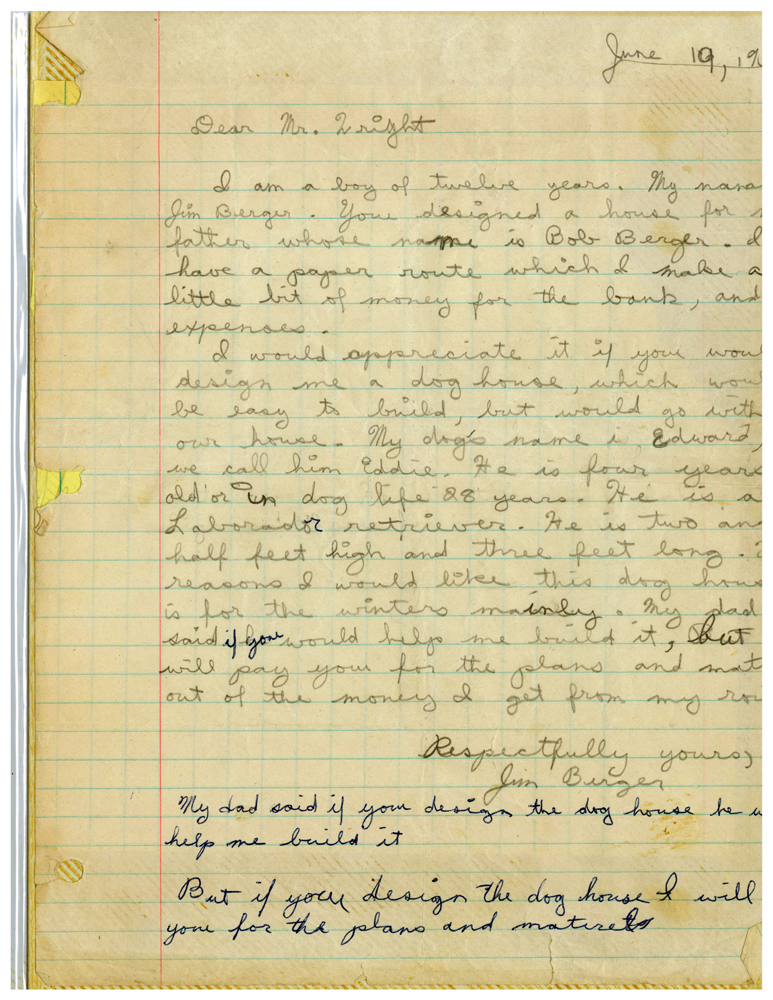 June 19, 19
Dear Mr. Wright
I am a boy of twelve years. My name
Jim Berger. You designed a house for
father whose name is Bob Berger. I
have a paper route which I make a
little bit of money for the bank, and
expenses.
I would appreciate it if you woul
design me a dog house, which woul
be easy to build, but would go with
our house. My dog's name i Edward,
we call him Eddie. He is four years
old or in dog life 28 years. He is a
Laborador retriever. He is two an
half feet high and three feet long.
reasons I would like this dog hous
is for the winters mainly. My dad
said if you would help me build it, but
will pay you for the plans and mat
out of the money I get from my rou
Respectfully yours,
Jim Berger
My dad said if you design the dog house he w
help me build it
But if you design the dog house I will
you for the plans and matirels